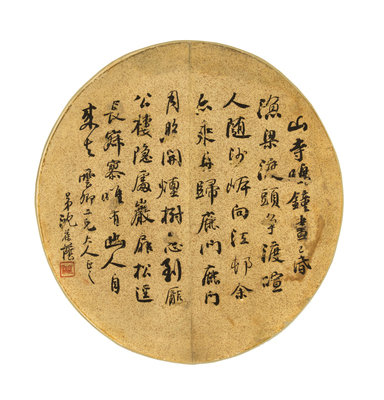 山寺鳴鐘晝已昏
漁梁渡頭爭渡喧
人隨沙岸向江邨余
亦乘舟歸鹿門鹿門
月照開煙樹忽到龐
公棲隱處巖扉松逕
長寂寥唯有幽人自
來去 雲卿二兄大人正之
弟沈